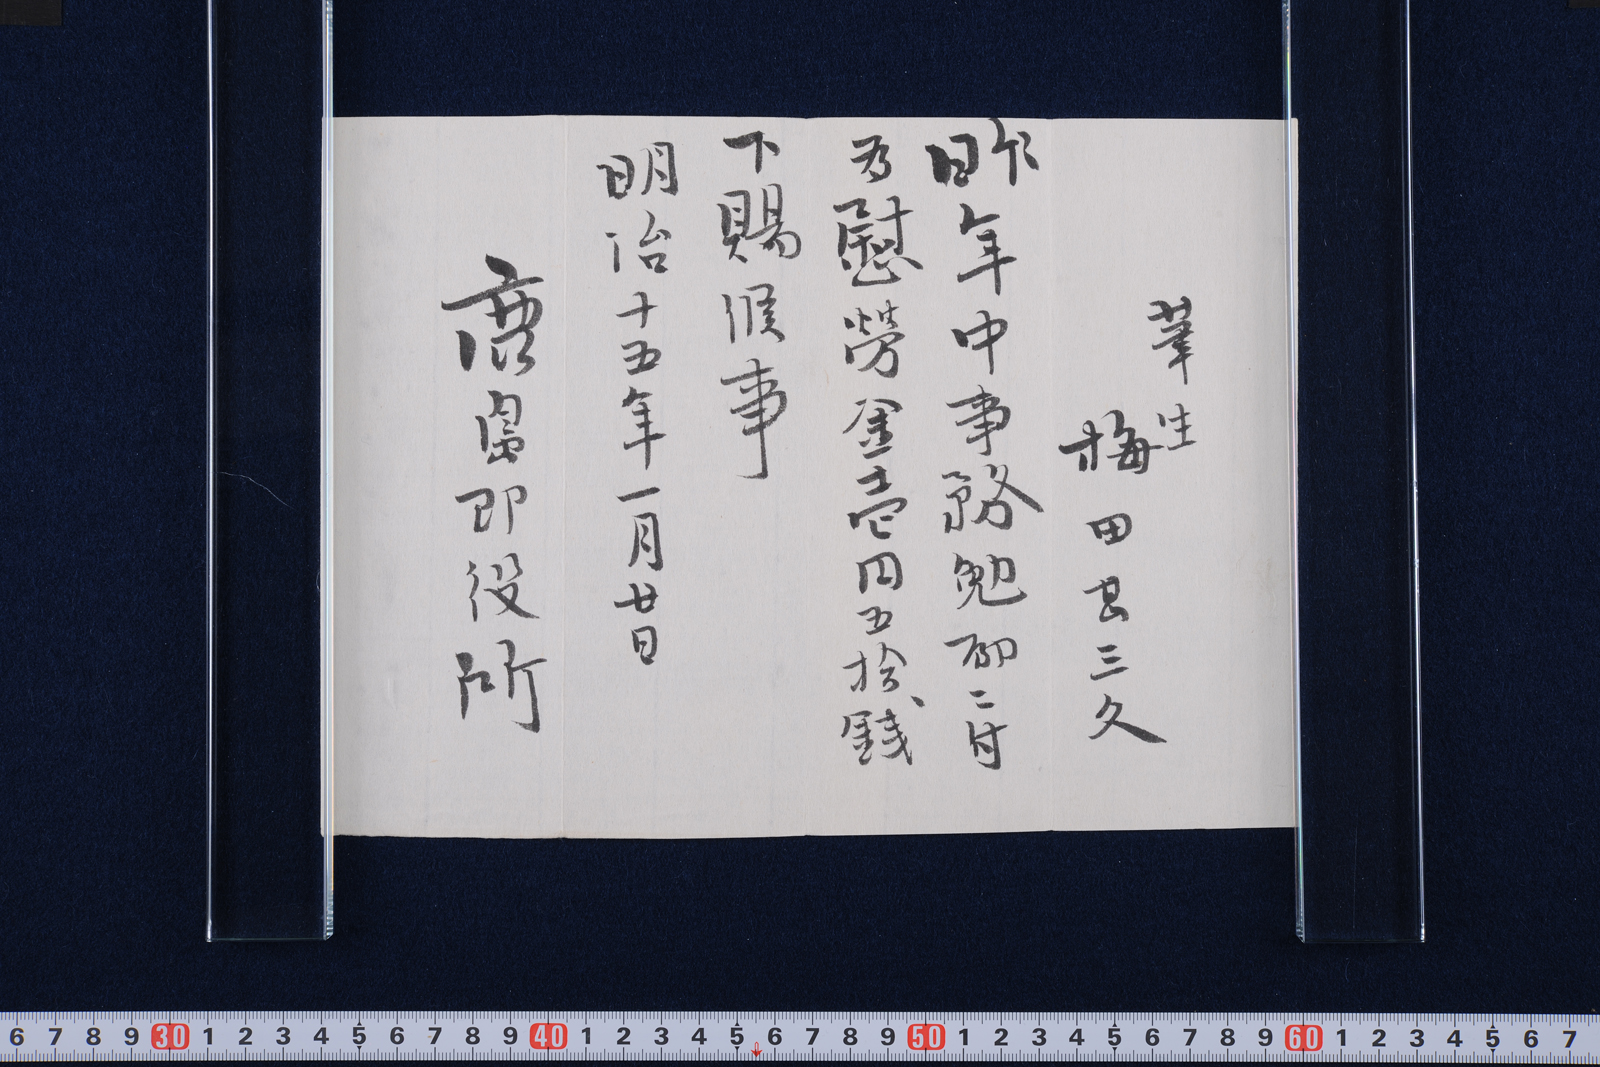 筆生
梅田甚三久
昨年中事務勉励ニ付
為慰勞金壱円五拾銭
下賜候事
明治十五年一月廿日
鹿島郡役所
6 7 8 9 30 1 2 3 4 5 6 7 8 9 40 1 2 3 4 5 6 7 8 9 50 1 2 3 4 5 6 7 8 9 60 1 2 3 4 5 6 7